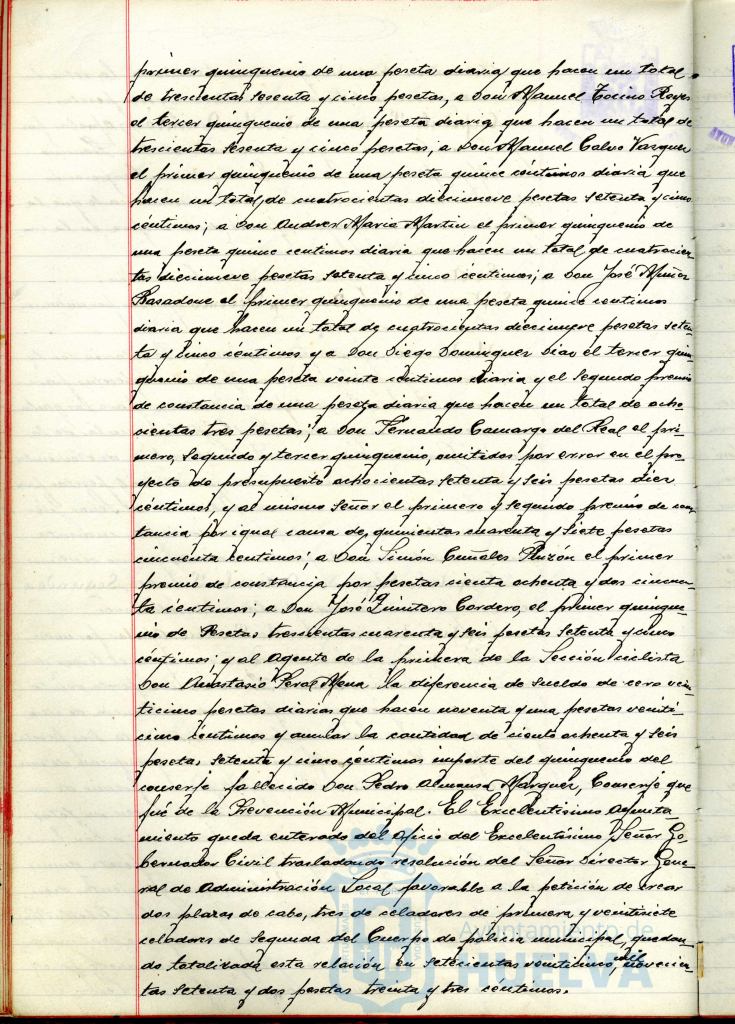 primer quinquenio de una peseta diaria que hacen un total
de trescientas sesenta y cinco pesetas, a Don Manuel Tocino Reyes
el tercer quinquenio de una peseta diaria que hacen un total de
trescientas sesenta y cinco pesetas, a Don Manuel Calvo Vazquez
el primer quinquenio de una peseta quince céntimos diaria que
hacen un total de cuatrocientas diecinueve pesetas setenta y cinco
céntimos; a Don Andres Maria Martin el primer quinquenio de
una peseta quince centimos diaria que hacen un total de cuatrocien-
tas diecinueve pesetas setenta y cinco centimos; a Don José Muñoz
Basadone el primer quinquenio de una peseta quince centimos
diaria que hacen un total de cuatrocientas diecinueve pesetas seten-
ta y cinco céntimos y a Don Diego Dominguez Diaz el tercer quin-
quenio de una peseta veinte céntimos diaria y el segundo premio
de constancia de una peseta diaria que hacen un total de ocho-
cientas tres pesetas; a Don Fernando Camargo del Real el pri-
mero, segundo y tercer quinquenio, omitidos por error en el pro-
yecto de presupuesto ochocientas setenta y seis pesetas diez
céntimos, y al mismo Señor el primero y segundo premio de cons-
tancia por igual causa de quinientas cuarenta y siete pesetas
cincuenta centimos; a Don Simón el primer
premio de constancia por pesetas cienta ochenta y dos cincuen-
ta céntimos; a Don José Quintero Cordero, el primer quinque-
nio de Pesetas trescientas cuarenta y seis pesetas setenta y cinco
céntimos; y al Agente de la primera de la Sección ciclista
Don Anastasio Peral Mena la diferencia de sueldo de cero vein-
ticinco pesetas diarias que hacen noventa y una pesetas veinti-
cinco céntimos y anular la cantidad de ciento ochenta y seis
pesetas setenta y cinco céntimos importe del quinquenio del
conserje fallecido Don Pedro Almansa Márquez, Conserje que
fué de la Prevención Municipal. El Excelentisimo Ayunta-
miento queda enterado del oficio del Excelentísimo Señor Go-
bernador Civil trasladando resolución del Señor Director Gene-
ral de Administración Local favorable a la petición de crear
dos plazas de cabo, tres de celadores de primera y veintisiete
celadores de segunda del Cuerpo de policia municipal, quedan-
do totalizada esta relación en setecientas veinticinco mil novecien-
tas setenta y dos pesetas treinta y tres céntimos.
Ayuntamiento de
HUELVA